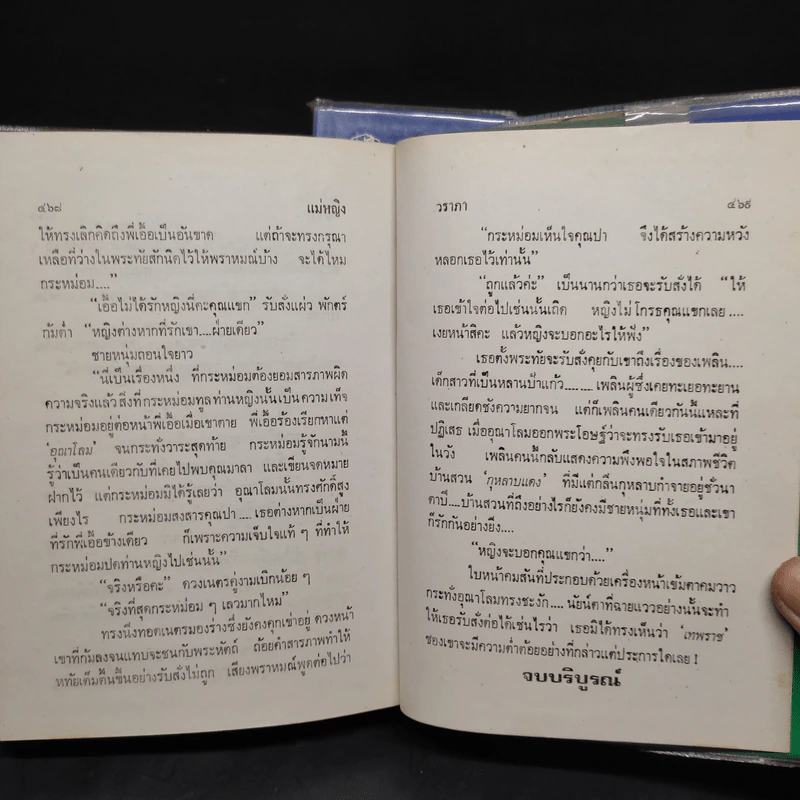 ๔๖๘ แม่หญิง
ให้ทรงเลิกคิดถึงพี่เอื้อเป็นอันขาด แต่ถ้าจะทรงกรุณา
เหลือที่ว่างในพระทัยสักนิดไว้ให้พราหมณ์บ้าง จะได้ไหม
กระหม่อม....”
“เอื้อไม่ได้รักหญิงนี่คะคุณแขก” รับสั่งแผ่ว พักตร์
ก้มต่ำ “หญิงต่างหากที่รักเขา....ฝ่ายเดียว”
ชายหนุ่มถอนใจยาว
“นี่เป็นเรื่องหนึ่ง ที่กระหม่อมต้องยอมสารภาพผิด
ความจริงแล้ว สิ่งที่กระหม่อมทูลท่านหญิงนั้นเป็นความเท็จ
กระหม่อมอยู่ต่อหน้าพี่เอื้อเมื่อเขาตาย พี่เอื้อร้องเรียกหาแต่
‘อุณาโลม’ จนกระทั่งวาระสุดท้าย กระหม่อมรู้จักนามนี้
รู้ว่าเป็นคนเดียวกับที่เคยไปพบคุณมาลา และเขียนจดหมาย
ฝากไว้ แต่กระหม่อมมิได้รู้เลยว่า อุณาโลมนั้นทรงศักดิ์สูง
เพียงไร กระหม่อมสงสารคุณปา .... เธอต่างหากเป็นฝ่าย
ที่รักพี่เอื้อข้างเดียว ก็เพราะความเจ็บใจแท้ ๆ ที่ทำให้
กระหม่อมปดท่านหญิงไปเช่นนั้น”
“จริงหรือคะ” ดวงเนตรคู่งามเบิกน้อย ๆ
“จริงที่สุดกระหม่อม ๆ เลวมากไหม”
ทรงนิ่งทอดเนตรมองร่างซึ่งยังคงคุกเข่าอยู่ ดวงหน้า
เขาที่ก้มลงจนแทบจะชนกับพระหัตถ์ ถ้อยคำสารภาพทำให้
หทัยเต็มตื้นขึ้นอย่างรับสั่งไม่ถูก เสียงพราหมณ์พูดต่อไปว่า
วราภา ๔๖๙
“กระหม่อมเห็นใจคุณปา จึงได้สร้างความหวัง
หลอกเธอไว้เท่านั้น”
“ถูกแล้วค่ะ” เป็นนานกว่าเธอจะรับสั่งได้ “ให้
เธอเข้าใจต่อไปเช่นนั้นเถิด หญิงไม่โกรธคุณแขกเลย ....
เงยหน้าสิคะ แล้วหญิงจะบอกอะไรให้ฟัง”
เธอตั้งพระทัยจะรับสั่งคุยกับเขาถึงเรื่องของเพลิน....
เด็กสาวที่เป็นหลานป้าแก้ว........ เพลินผู้ซึ่งเคยทะเยอทะยาน
และเกลียดชังความยากจน แต่ก็เพลินคนเดียวกันนี้แหละที่
ปฏิเสธ เมื่ออุณาโลมออกพระโอษฐ์ว่าจะทรงรับเธอเข้ามาอยู่
ในวัง เพลินคนนี้กลับแสดงความพึงพอใจในสภาพชีวิต
บ้านสวน ‘กุหลาบแดง’ ที่มีแต่กลิ่นกุหลาบกำจายอยู่ชั่วนา
ตาปี....บ้านสวนที่ถึงอย่างไรก็ยังคงมีชายหนุ่มที่ทั้งเธอและเขา
ก็รักกันอย่างยิ่ง....
“หญิงจะบอกคุณแขกว่า....”
ใบหน้าคมสันที่ประกอบด้วยเครื่องหน้าเข้มตาคมวาว
กระทั่งอุณาโลมทรงชะงัก.... นัยน์ตาที่ฉายแววอย่างนั้นจะทำ
ให้เธอรับสั่งต่อได้เช่นไรว่า เธอมิได้ทรงเห็นว่า ‘เทพราช’
ของเขาจะมีความต่ำต้อยอย่างที่กล่าวแต่ประการใดเลย !
จบบริบูรณ์